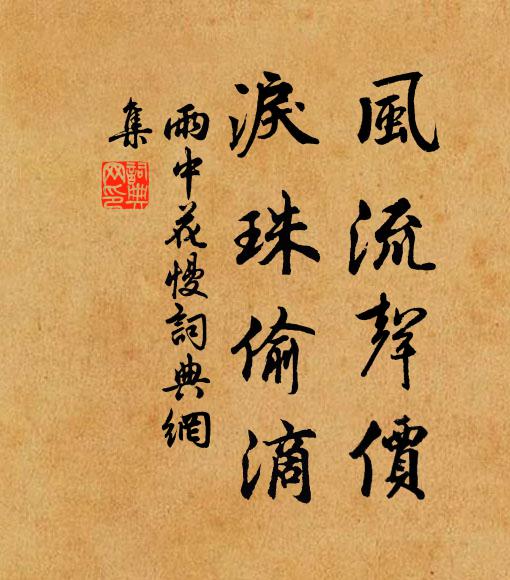 風流聲價
淚珠偷滴
雨中花慢詞典網
集
詞典
网印